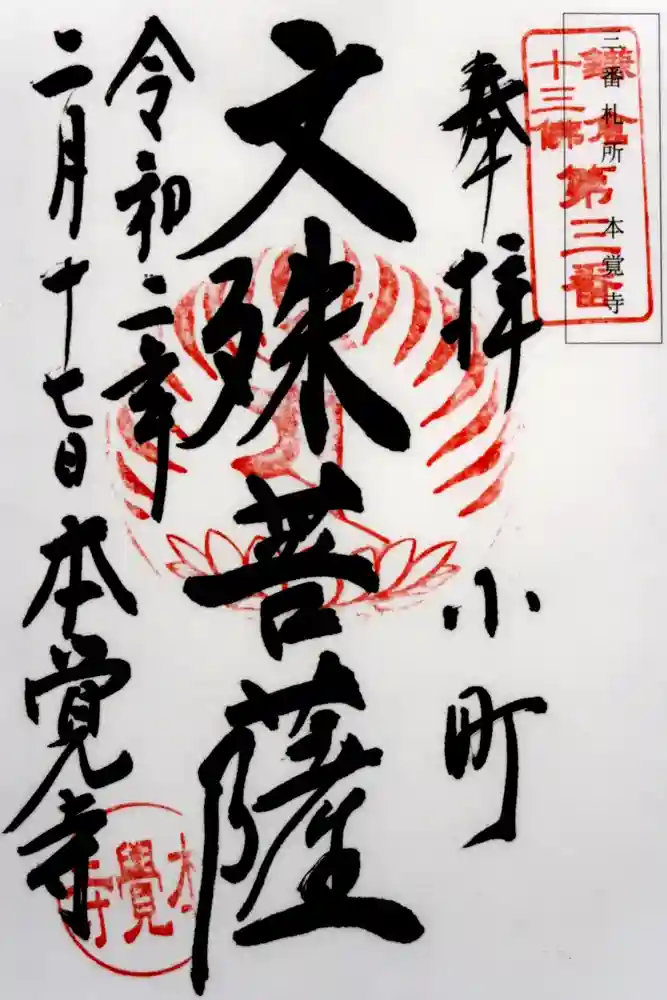 三番札所 本覚寺
鎌倉
十三佛
第三番
奉拝
小町
文殊菩薩
令和二年
二月十七日
本覚寺
本覺寺